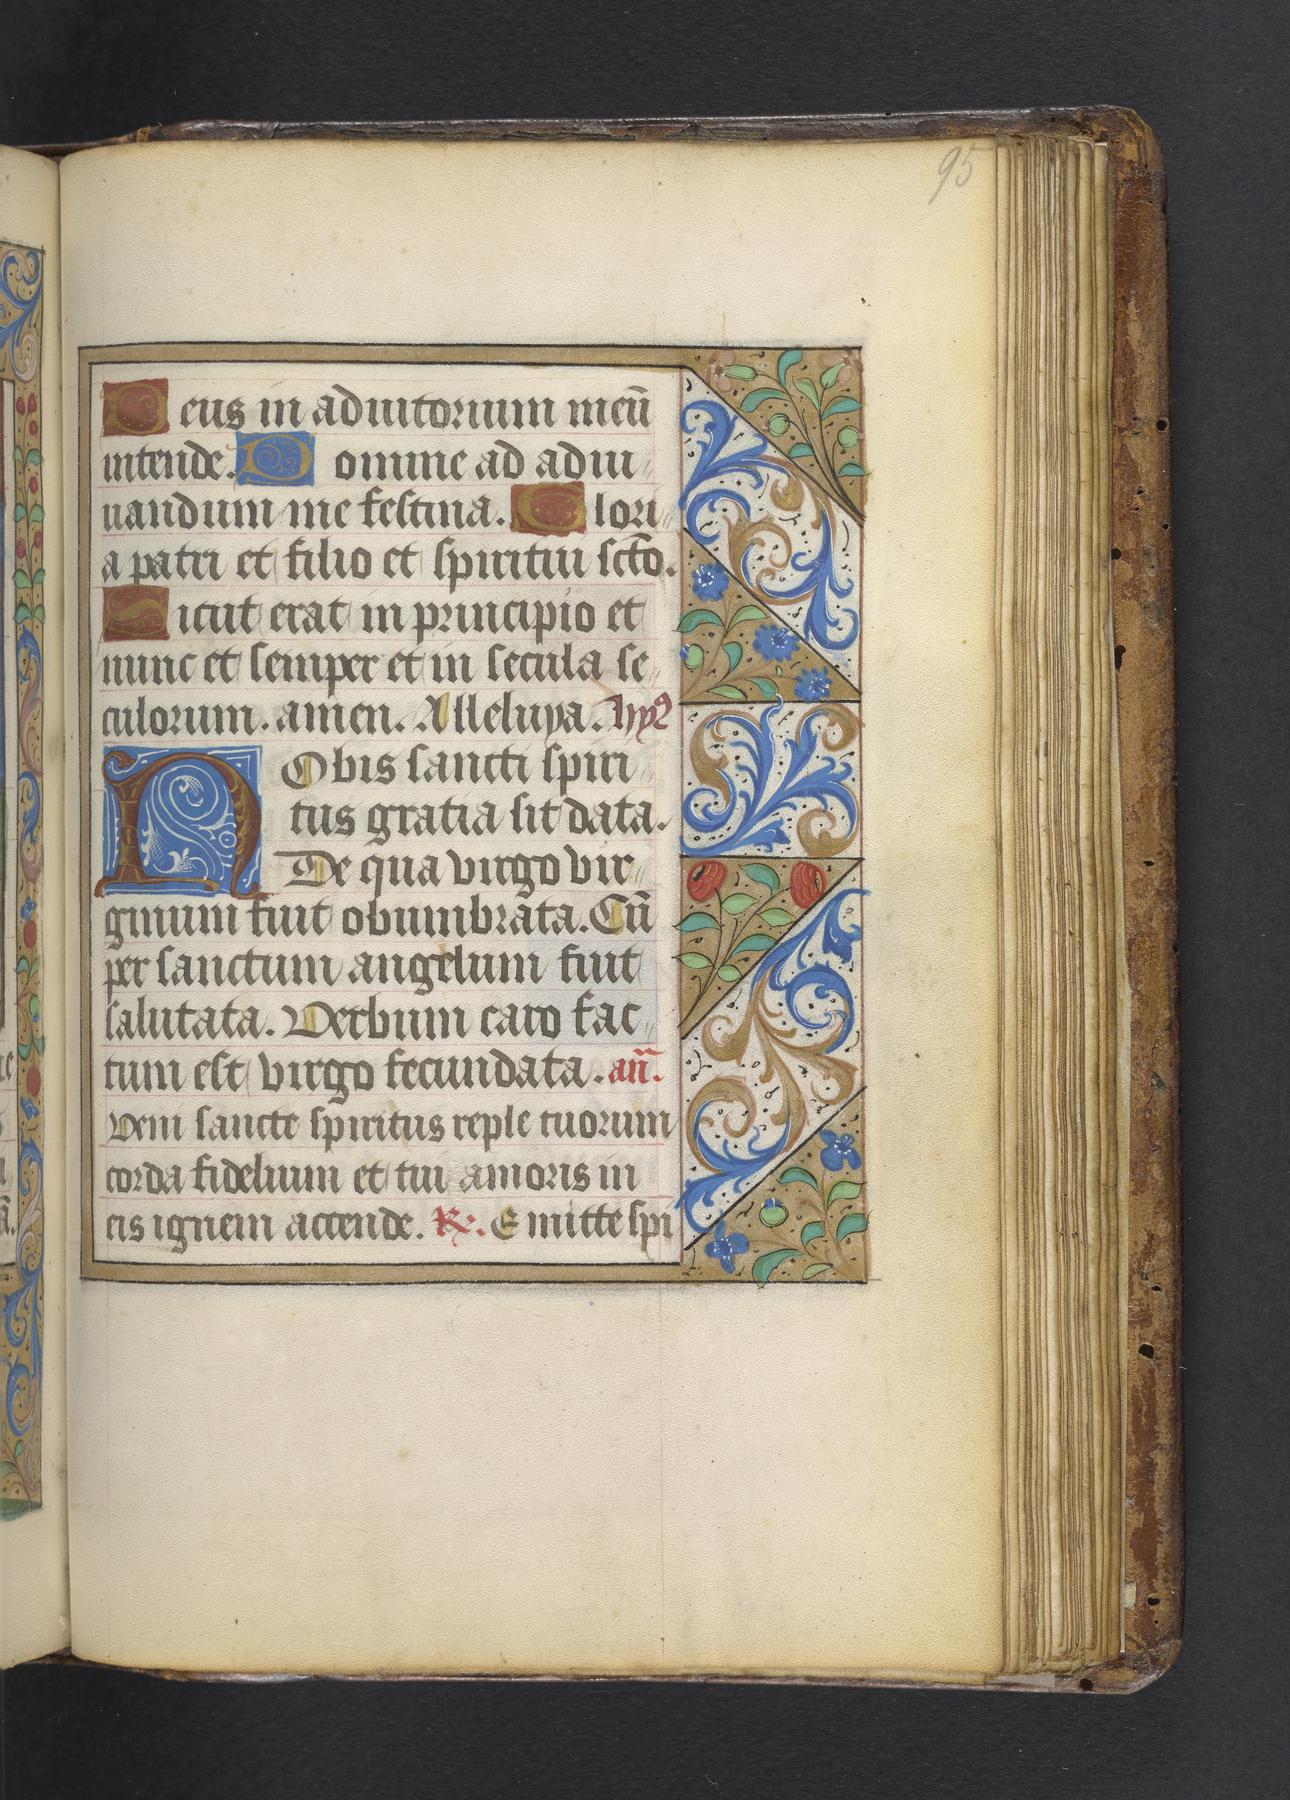 95
Deus in adiutorium meū
intende. Domine ad adiu
uandum me festina. Glori
a patri et filio et spiritui scto.
Sicut erat in principio et
nunc et semper et in secula se
culorum. amen. Alleluya. hyꝰ
NObis sancti spiri
tus gratia sit data.
De qua virgo vir
ginum fuit obumbrata. Cū
per sanctum angelum fuit
salutata. Verbum caro fac
tum est virgo fecundata. añ.
Veni sancte spiritus reple tuorum
corda fidelium et tui amoris in
eis ignem accende. ℟. Emitte spi